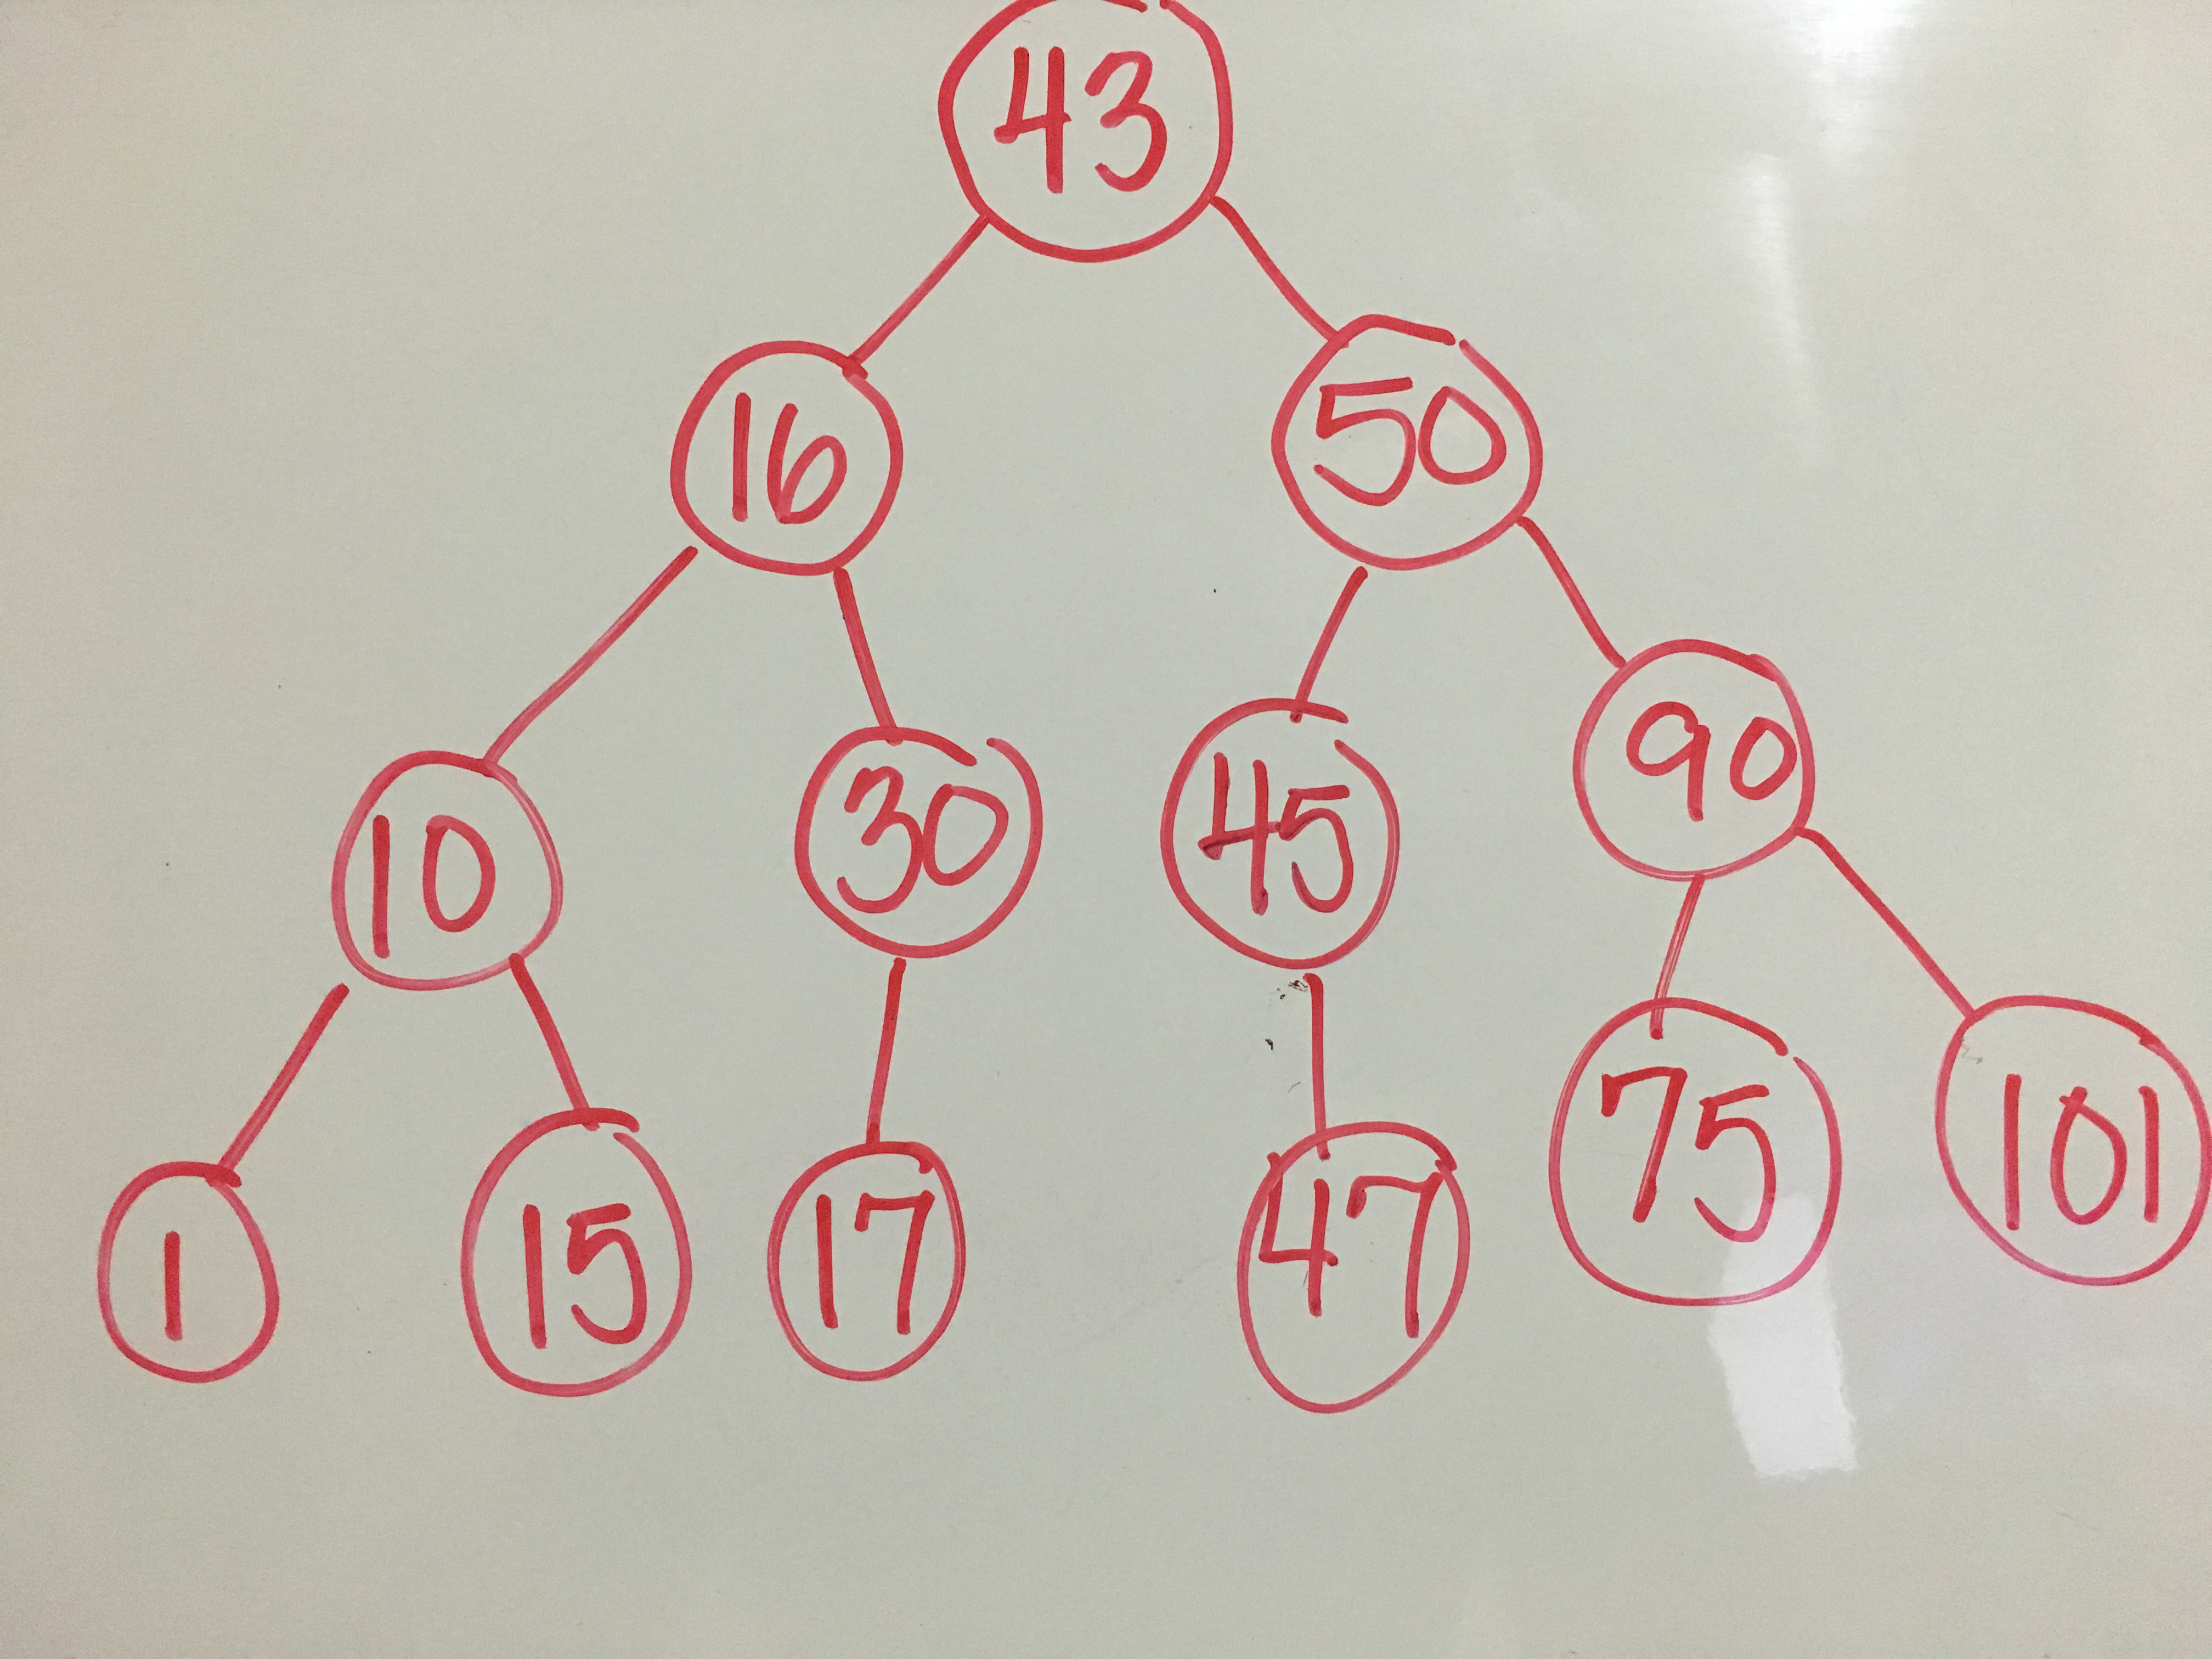 43
16 50
10 30 45 90
1 15 17 47 75 101